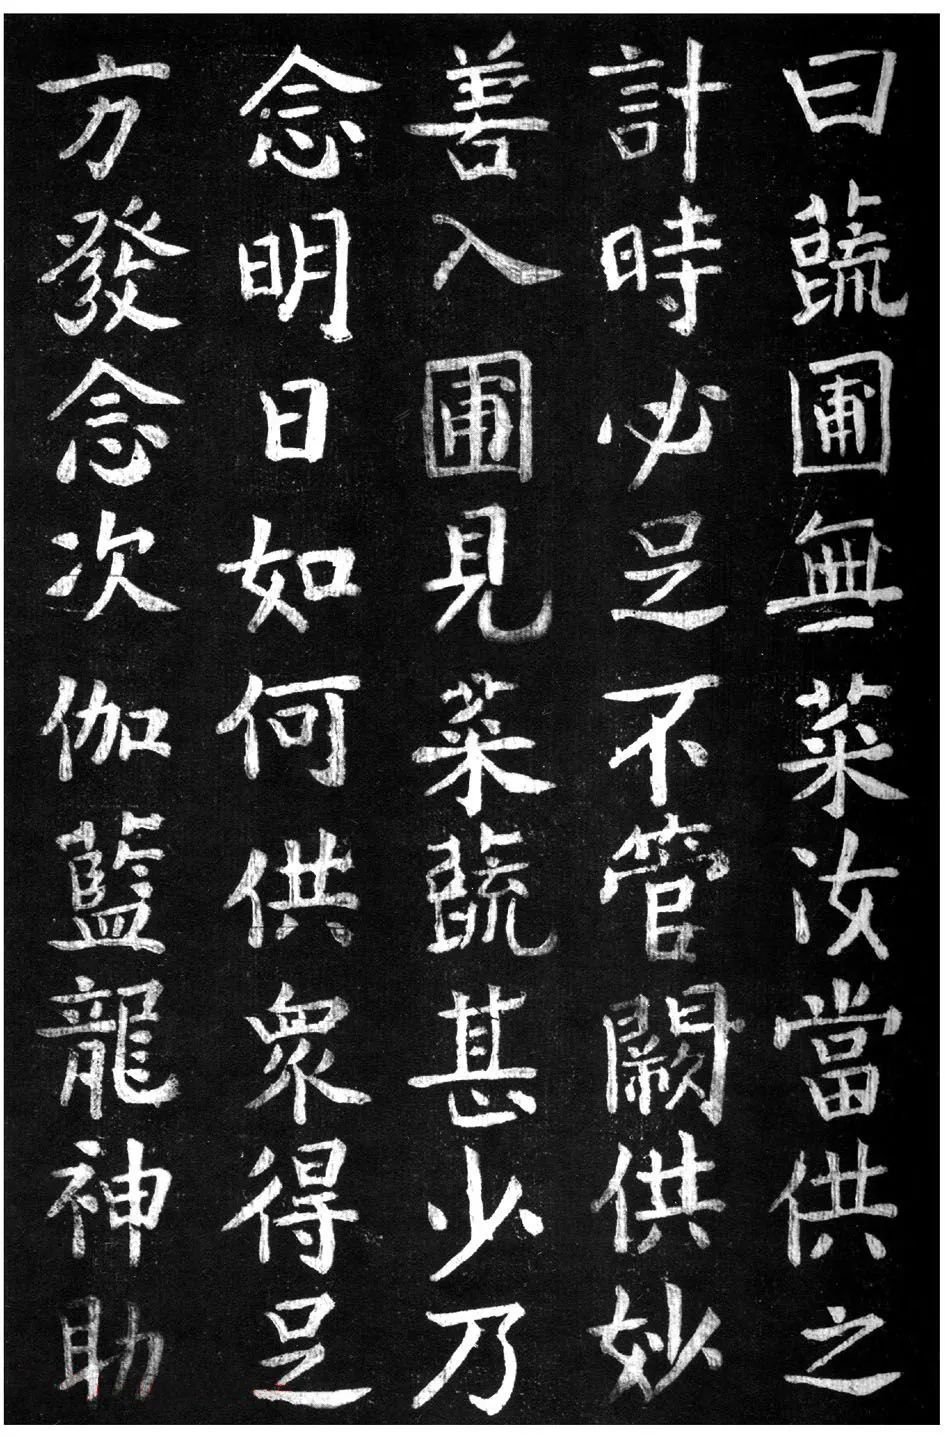 曰蔬圃無菜汝當供之
計時必足不管闕供妙
善入圃見菜蔬甚少乃
念明日如何供眾得足
方發念次伽藍龍神助